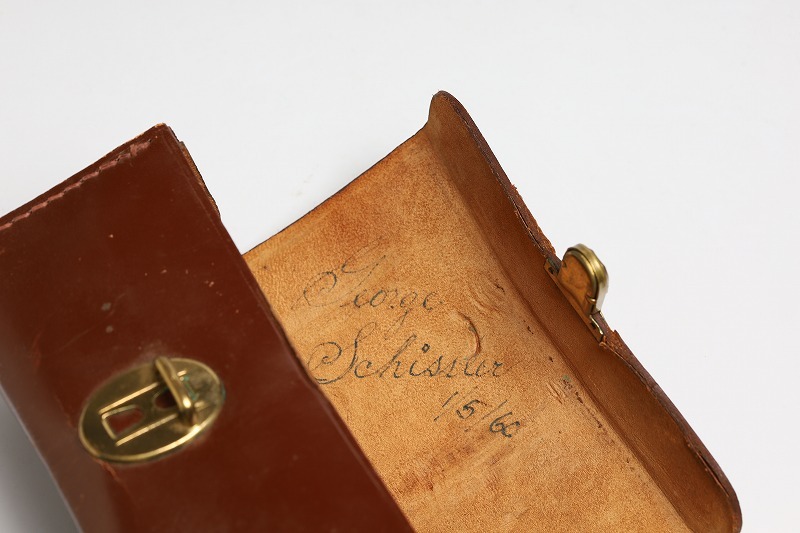 George
Schisser
1/5/60